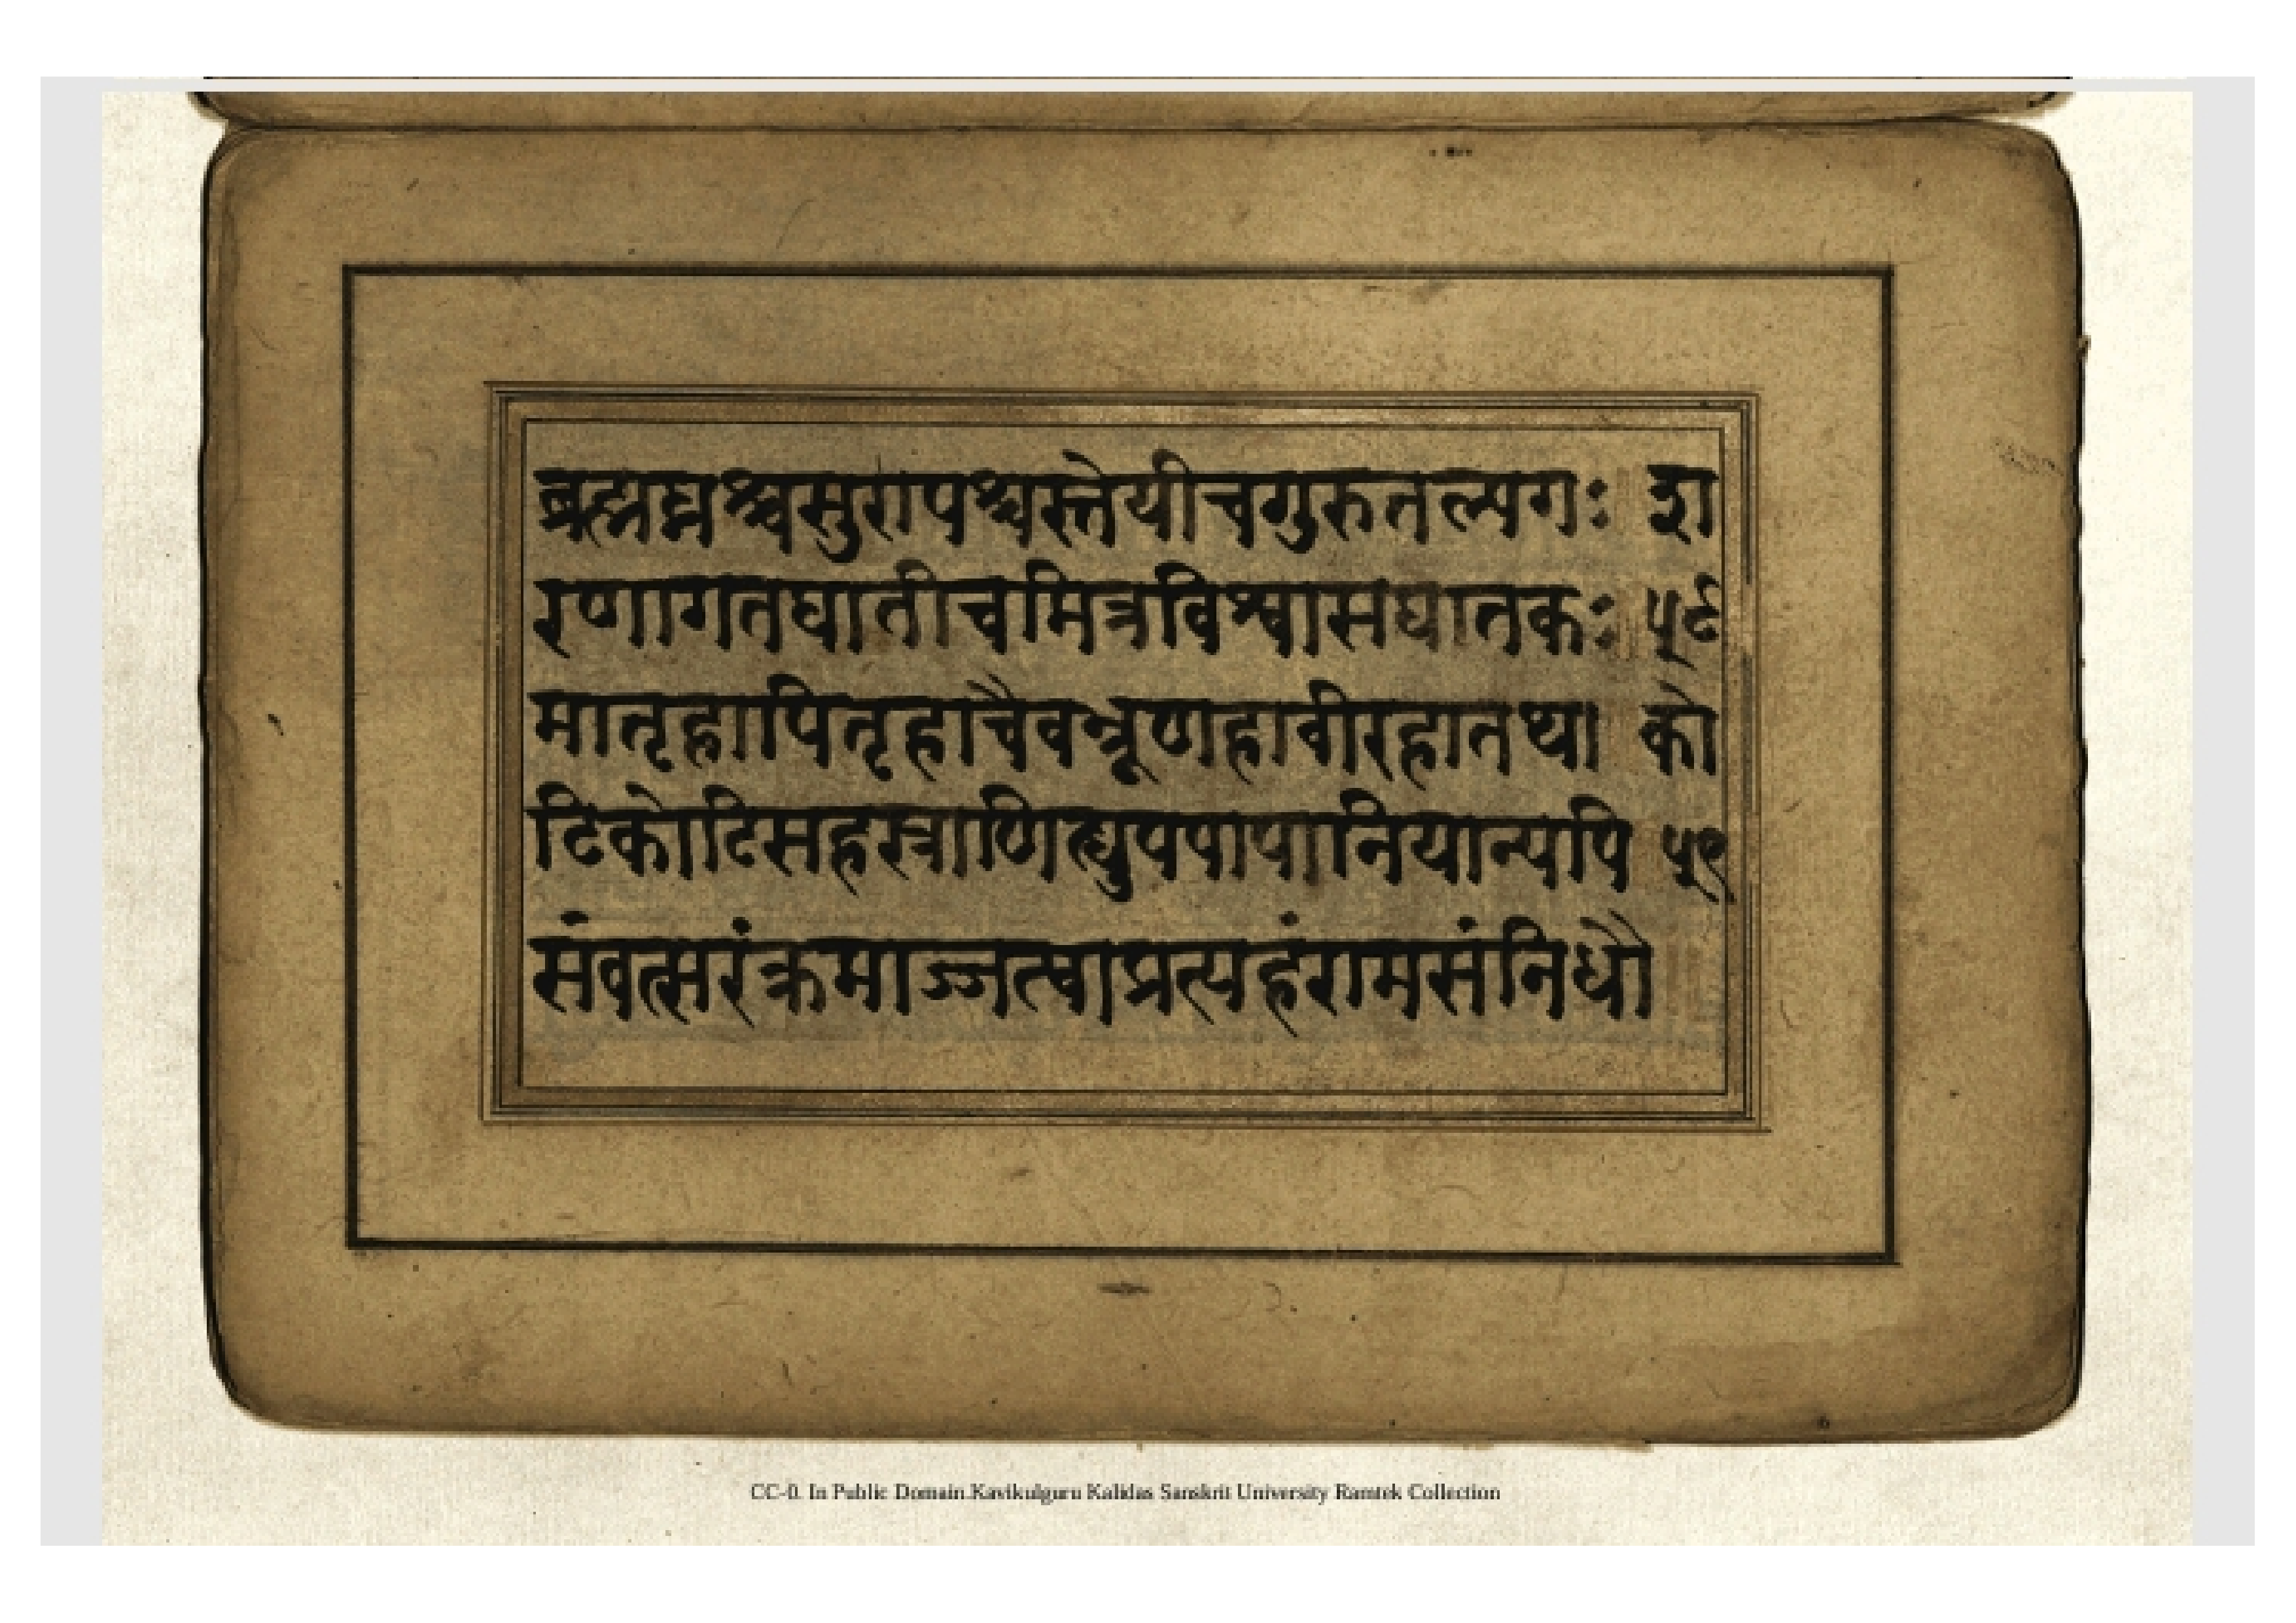 ब्रह्मघ्नश्चसुरापश्चस्तेयीचगुरुतल्पगः ॥ श
रणागतघातीचमित्रविश्वासघातकः ॥ ५८
मातृहापितृहाचैवभ्रूणहावीरहातथा ॥ को
टिकोटिसहस्राणिह्युपपापानियान्यपि ५९
संवत्सरंक्रमाज्जत्वाप्रत्यहंरामसंनिधौ ॥
CC-0. In Public Domain.Kavikulguru Kalidas Sanskrit University Ramtek Collection